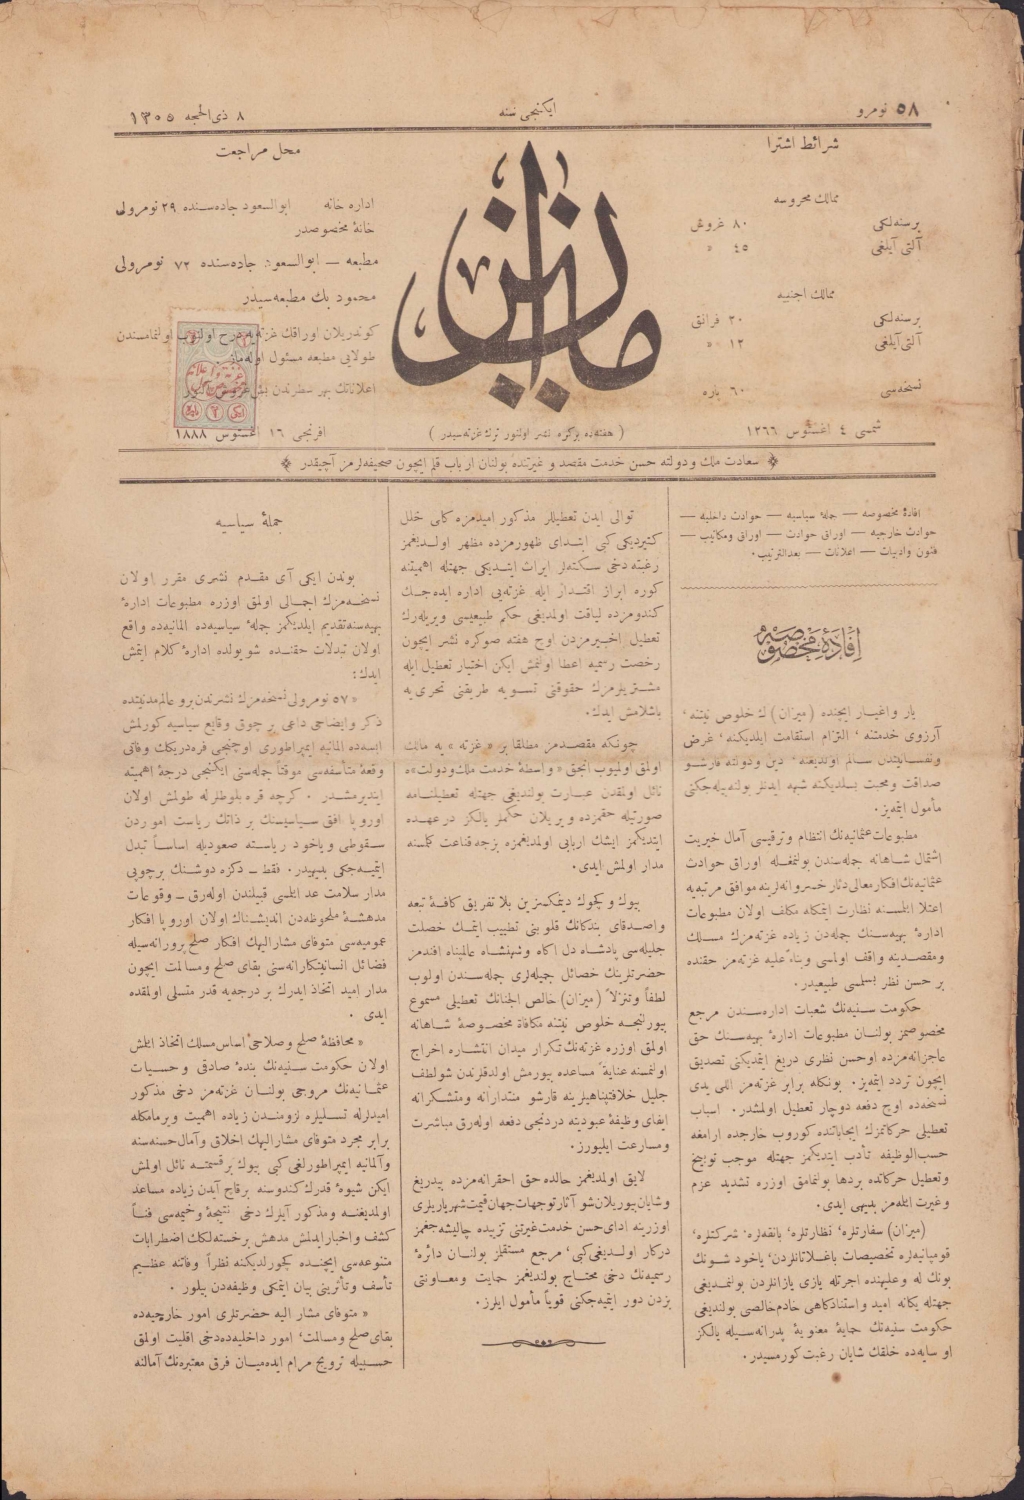 ٥٨ نومرو
ایکنجی سنه
٨ ذی الحجه ١٣٠٥
شرائط اشترا
ممالك محروسه
برسنه‌لکی ٨٠ غروش
آلتی آیلغی ٤٥ »
ممالك اجنبیه
برسنه‌لکی ٢٠ فرانق
آلتی آیلغی ١٢ »
نسخه‌سی ٦٠ پاره
شمسی ٤ اغستوس ١٢٦٦
میزان
( هفته‌ده برکره نشر اولنور ترك غزته‌سیدر )
محل مراجعت
اداره خانه ابوالسعود جاده‌سنده ٢٩ نومرولی
خانهٔ مخصوصدر
مطبعه — ابوالسعود جاده‌سنده ٧٢ نومرولی
محمود بك مطبعه‌سیدر
کوندریلان اوراقك غزته‌یه درج اولنوب اولنمامسندن
طولایی مطبعه مسئول اوله‌ماز
اعلاناتك بهر سطرندن بش غروش آلنور
افرنجی ١٦ اغستوس ١٨٨٨
سعادت ملك و دولته حسن خدمت مقصد و غیرتنده بولنان ارباب قلم ایچون صحیفه‌لرمز آچیقدر
افادهٔ مخصوصه — جملهٔ سیاسیه — حوادث داخلیه —
حوادث خارجیه — اوراق حوادث — اوراق ومکاتیب —
فنون وادبیات — اعلانات — بعدالترتیب .
افادهٔ مخصوصه
یار واغیار ایچنده (میزان) ك خلوص نیتنه ،
آرزوی خدمتنه ، التزام استقامت ایلدیکنه ، غرض
ونفسانیتدن سالم اولدیغنه ، دین ودولته قارشو
صداقت ومحبت بسلدیکنه شبهه ایدنلر بولنه‌بیله‌جکنی
مأمول ایتمه‌یز .
مطبوعات عثمانیه‌نك انتظام وترقیسی آمال خیریت
اشتمال شاهانه جمله‌سندن بولنمغله اوراق حوادث
عثمانیه‌نك افکار معالی دثار خسروانه‌لرینه موافق مرتبه‌یه
اعتلا ایتلمسنه نظارت ایتمکله مکلف اولان مطبوعات
ادارهٔ بهیه‌سنك جمله‌دن زیاده غزته‌مزك مسلك
ومقصدینه واقف اولمسی وبناءً علیه غزته‌مز حقنده
بر حسن نظر بسلمسی طبیعیدر .
حکومت سنیه‌نك شعبات اداره‌سندن مرجع
مخصوصمز بولنان مطبوعات ادارهٔ بهیه‌سنك حق
عاجزانه‌مزده او حسن نظری دریغ ایتمدیکنی تصدیق
ایچون تردد ایتمه‌یز . بونکله برابر غزته‌مز اللی یدی
نسخه‌ده اوچ دفعه دوچار تعطیل اولمشدر . اسباب
تعطیلی حرکاتمزك ایجاباتنده کوروب خارجده ارامغه
حسب‌الوظیفه تأدب ایتدیکمز جهتله موجب توبیخ
وتعطیل حرکاتده بردها بولنمامق اوزره تشدید عزم
وغیرت ایتله‌مز بدیهی ایدی .
(میزان) سفارتلره ، نظارتلره ، بانقه‌لره ، شرکتلره ،
قومپانیه‌لره تخصیصات باغلاتانلردن ، یاخود شونك
بونك له وعلیهنده اجرتله یازی یازانلردن بولنمدیغی
جهتله یکانه امید واستنادکاهی خادم خالصی بولندیغی
حکومت سنیه‌نك حمایهٔ معنویهٔ پدرانه‌سیله یالکز
او سایه‌ده خلقك شایان رغبت کورمسیدر .
توالی ایدن تعطیللر مذکور امیدمزه کمی خلل
کتیردیکی کبی ابتدای ظهورمزده مظهر اولدیغمز
رغبته دخی سکته‌لر ایراث ایتدیکی جهتله اهمیتنه
کوره ابراز اقتدار ایله غزته‌یی اداره ایده‌جك
کندومزده لیاقت اولمدیغی حکم طبیعیسی ویریله‌رك
تعطیل اخیرمزدن اوچ هفته صوکره نشر ایچون
رخصت رسمیه اعطا اولنمش ایکن اختیار تعطیل ایله
مشتریلرمزك حقوقنی تسویه طریقنی تحری‌یه
باشلامش ایدك .
چونکه مقصدمز مطلقا بر « غزته » یه مالك
اولمق اولمیوب آنجق « واسطهٔ خدمت ملك ودولت » ه
نائل اولمقدن عبارت بولندیغی جهتله تعطیلنامه
صورتیله حقمزده ویریلان حکملر یالکز درعهده
ایتدیکمز ایشك اربابی اولمدیغمزه بزجه قناعت کلمسنه
مدار اولمش ایدی .
بیوك وکچوك دیمکسزین بلا تفریق کافهٔ تبعه
واصدقای بندکانك قلوبنی تطییب ایتمك خصلت
جلیله‌سی پادشاه دل آکاه وشهنشاه عالمپناه افندمز
حضرتلرینك خصائل جمیله‌لری جمله‌سندن اولوب
لطفاً وتنزلاً (میزان) خالص الجنانك تعطیلی مسموع
بیورلنجه خلوص نیتنه مکافاة مخصوصهٔ شاهانه
اولمق اوزره غزته‌نك تکرار میدان انتشاره اخراج
اولنمسنه عنایةً مساعده بیورمش اولدقلرندن شو لطف
جلیل خلافتپناهیلرینه قارشو منتدارانه ومتشکرانه
ایفای وظیفهٔ عبودیته دردنجی دفعه اوله‌رق مباشرت
ومسارعت ایلیورز .
لایق اولمدیغمز حالده حق احقرانه‌مزده بیدریغ
وشایان بیوریلان شو آثار توجهات جهان قیمت شهریاریلری
اوزرینه ادای حسن خدمت غیرتنی تزییده چالیشه‌جغمز
درکار اولدیغی کبی ، مرجع مستقلز بولنان دائرهٔ
رسمیه‌نك دخی محتاج بولندیغمز حمایت ومعاونتی
بزدن دور ایتمیه‌جکنی قویاً مأمول ایلرز .
جملهٔ سیاسیه
بوندن ایکی آی مقدم نشری مقرر اولان
نسخه‌مزك اجمالی اولمق اوزره مطبوعات ادارهٔ
بهیه‌سنه تقدیم ایلدیکمز جملهٔ سیاسیه‌ده المانیه‌ده واقع
اولان تبدلات حقنده شو یولده ادارهٔ کلام ایتمش
ایدك :
« ٥٧ نومرولی نسخه‌مزك نشرندن برو عالم مدنیتده
ذکر وایضاحی داعی بر چوق وقایع سیاسیه کورلمش
ایسه‌ده المانیه ایمپراطوری اوچنجی فره‌دریکك وفاتی
وقعهٔ متأسفه‌سی موقتاً جمله‌سنی ایکنجی درجهٔ اهمیته
ایندیرمشدر . کرچه قره بلوطلر له طولمش اولان
اوروپا افق سیاسیسنك بر ذاتك ریاست اموردن
سقوطی ویاخود ریاسته صعودیله اساساً تبدل
ایتمیه‌جکی بدیهیدر . فقط — دکزه دوشنك برچوپی
مدار سلامت عد ایتلمسی قبیلندن اوله‌رق — وقوعات
مدهشهٔ ملحوظه‌دن اندیشناك اولان اوروپا افکار
عمومیه‌سی متوفای مشارالیهك افکار صلح پرورانه‌سیله
فضائل انسانیتکارانه‌سنی بقای صلح ومسالمت ایچون
مدار امید اتخاذ ایدرك بر درجه‌یه قدر متسلی اولمقده
ایدی .
« محافظهٔ صلح وصلاحی اساس مسلك اتخاذ ایتمش
اولان حکومت سنیه‌نك بندهٔ صادقی وحسیات
عثمانیه‌نك مروجی بولنان غزته‌مز دخی مذکور
امیدلرله تسلیلره لزومندن زیاده اهمیت ویرمامکله
برابر مجرد متوفای مشارالیهك اخلاق وآمال حسنه‌سنه
وآلمانیه ایمپراطورلغی کبی بیوك بر قسمته نائل اولمش
ایکن شیوهٔ قدرك کندوسنه برقاچ آیدن زیاده مساعد
اولمدیغنه ومذکور آیلرك دخی نتیجهٔ وخیمه‌سی فناً
کشف واخبار ایدلمش مدهش برخسته‌لکك اضطرابات
متنوعه‌سی ایچنده کچورلدیکنه نظراً وفاتنه عظیم
تأسف وتأثرینی بیان ایتمکی وظیفه‌دن بیلور .
« متوفای مشار الیه حضرتلری امور خارجیه‌ده
بقای صلح ومسالمت ، امور داخلیه‌ده دخی اقلیت اولمق
حسبیله ترویج مرام ایده‌میان فرق معتبره‌نك آمالنه